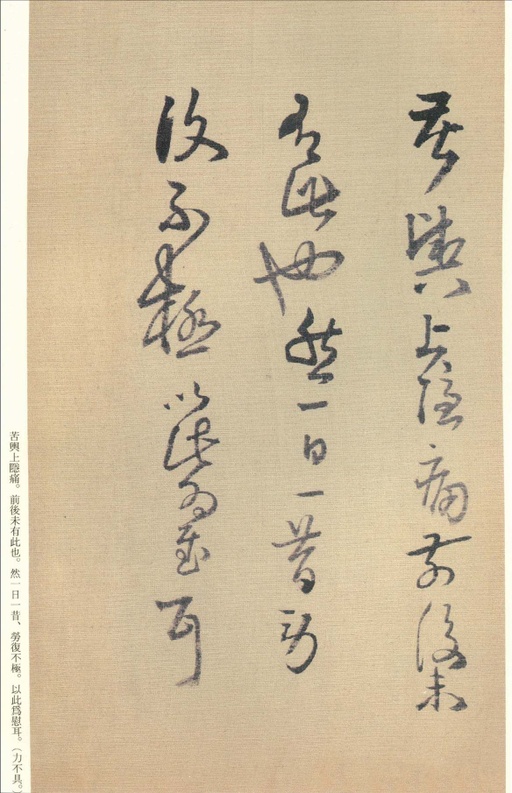 苦輿上隠痛前後未
有此也然一日一昔勞
復不極以此為慰耳
苦輿上隠痛。前後未有此也。然一日一昔、勞復不極。以此爲慰耳。(力不具。)